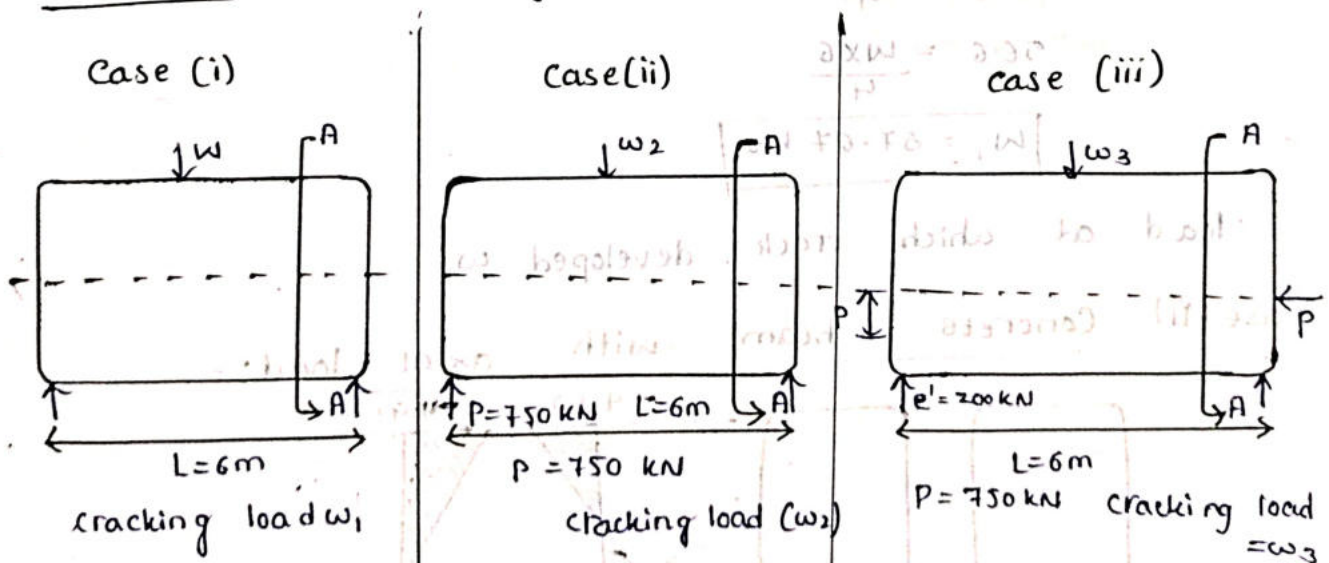 Case (i)
↓W
A
A
L=6m
cracking load ω₁
Case(ii)
↓ω2
A
P=750 KN L=6m
A
P = 750 KN
cracking load (ω₂)
case (iii)
↓ω3
A
P
P
e'=200KN
A
L=6m
P = 750KN cracking load
=ω3